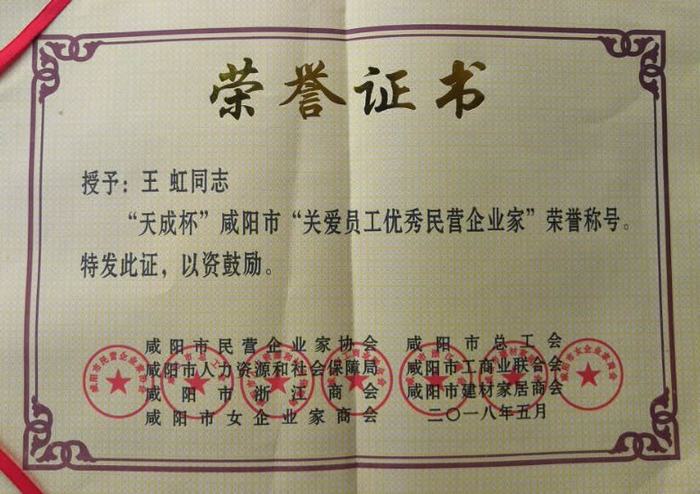 荣誉证书
授予：王 虹同志
“天成杯”咸阳市“关爱员工优秀民营企业家”荣誉称号。
特发此证，以资鼓励。
咸阳市民营企业家协会 咸阳市总工会
咸阳市人力资源和社会保障局 咸阳市工商业联合会
咸阳市浙江商会 咸阳市建材家居商会
咸阳市女企业家商会 二〇一八年五月